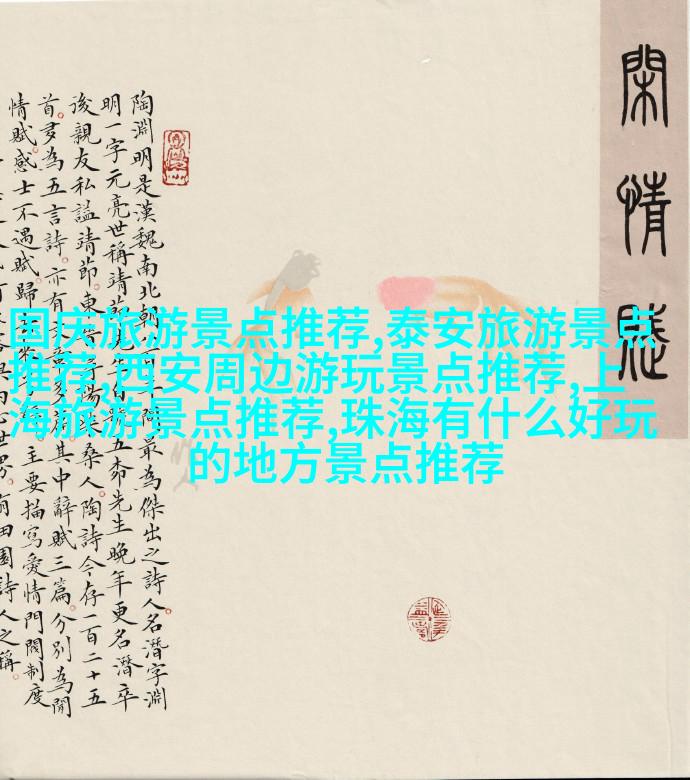 閑情賦
陶淵明是漢魏南北朝
最為傑出之詩人名潛字淵
明一字元亮世稱靖節
五柳先生晚年更名潛卒
後親友私謚靖節東
桑人陶詩今存一百二十五
首多為五言詩亦有
其中辭賦三篇分別為閒
情賦感士不遇賦歸
主要描寫愛情門閥制度
田園詩人之稱
国庆旅游景点推荐,泰安旅游景点
推荐,西安周边游玩景点推荐,上
海旅游景点推荐,珠海有什么好玩
的地方景点推荐